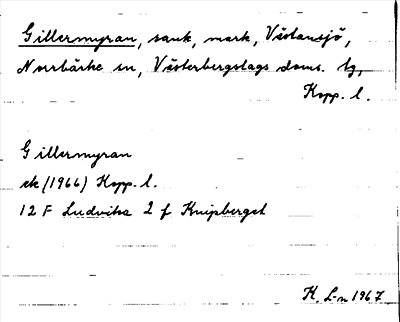 Gillermyran, sank, mark, Västansjö,
Norrbärke sn, Västerbergslags doms. tg,
Kopp. l.
Gillermyran
ek (1966) Kopp. l.
12 F Ludvika 2 f Knipberget
K. L-n 1967